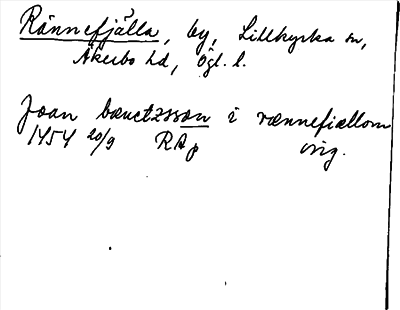 Rännefjälla, by, Lillkyrka sn,
Åkerbo hd, Ögl. l.
Joan bænctzsson i rænnefiællom
1454 20/9 RAp orig.